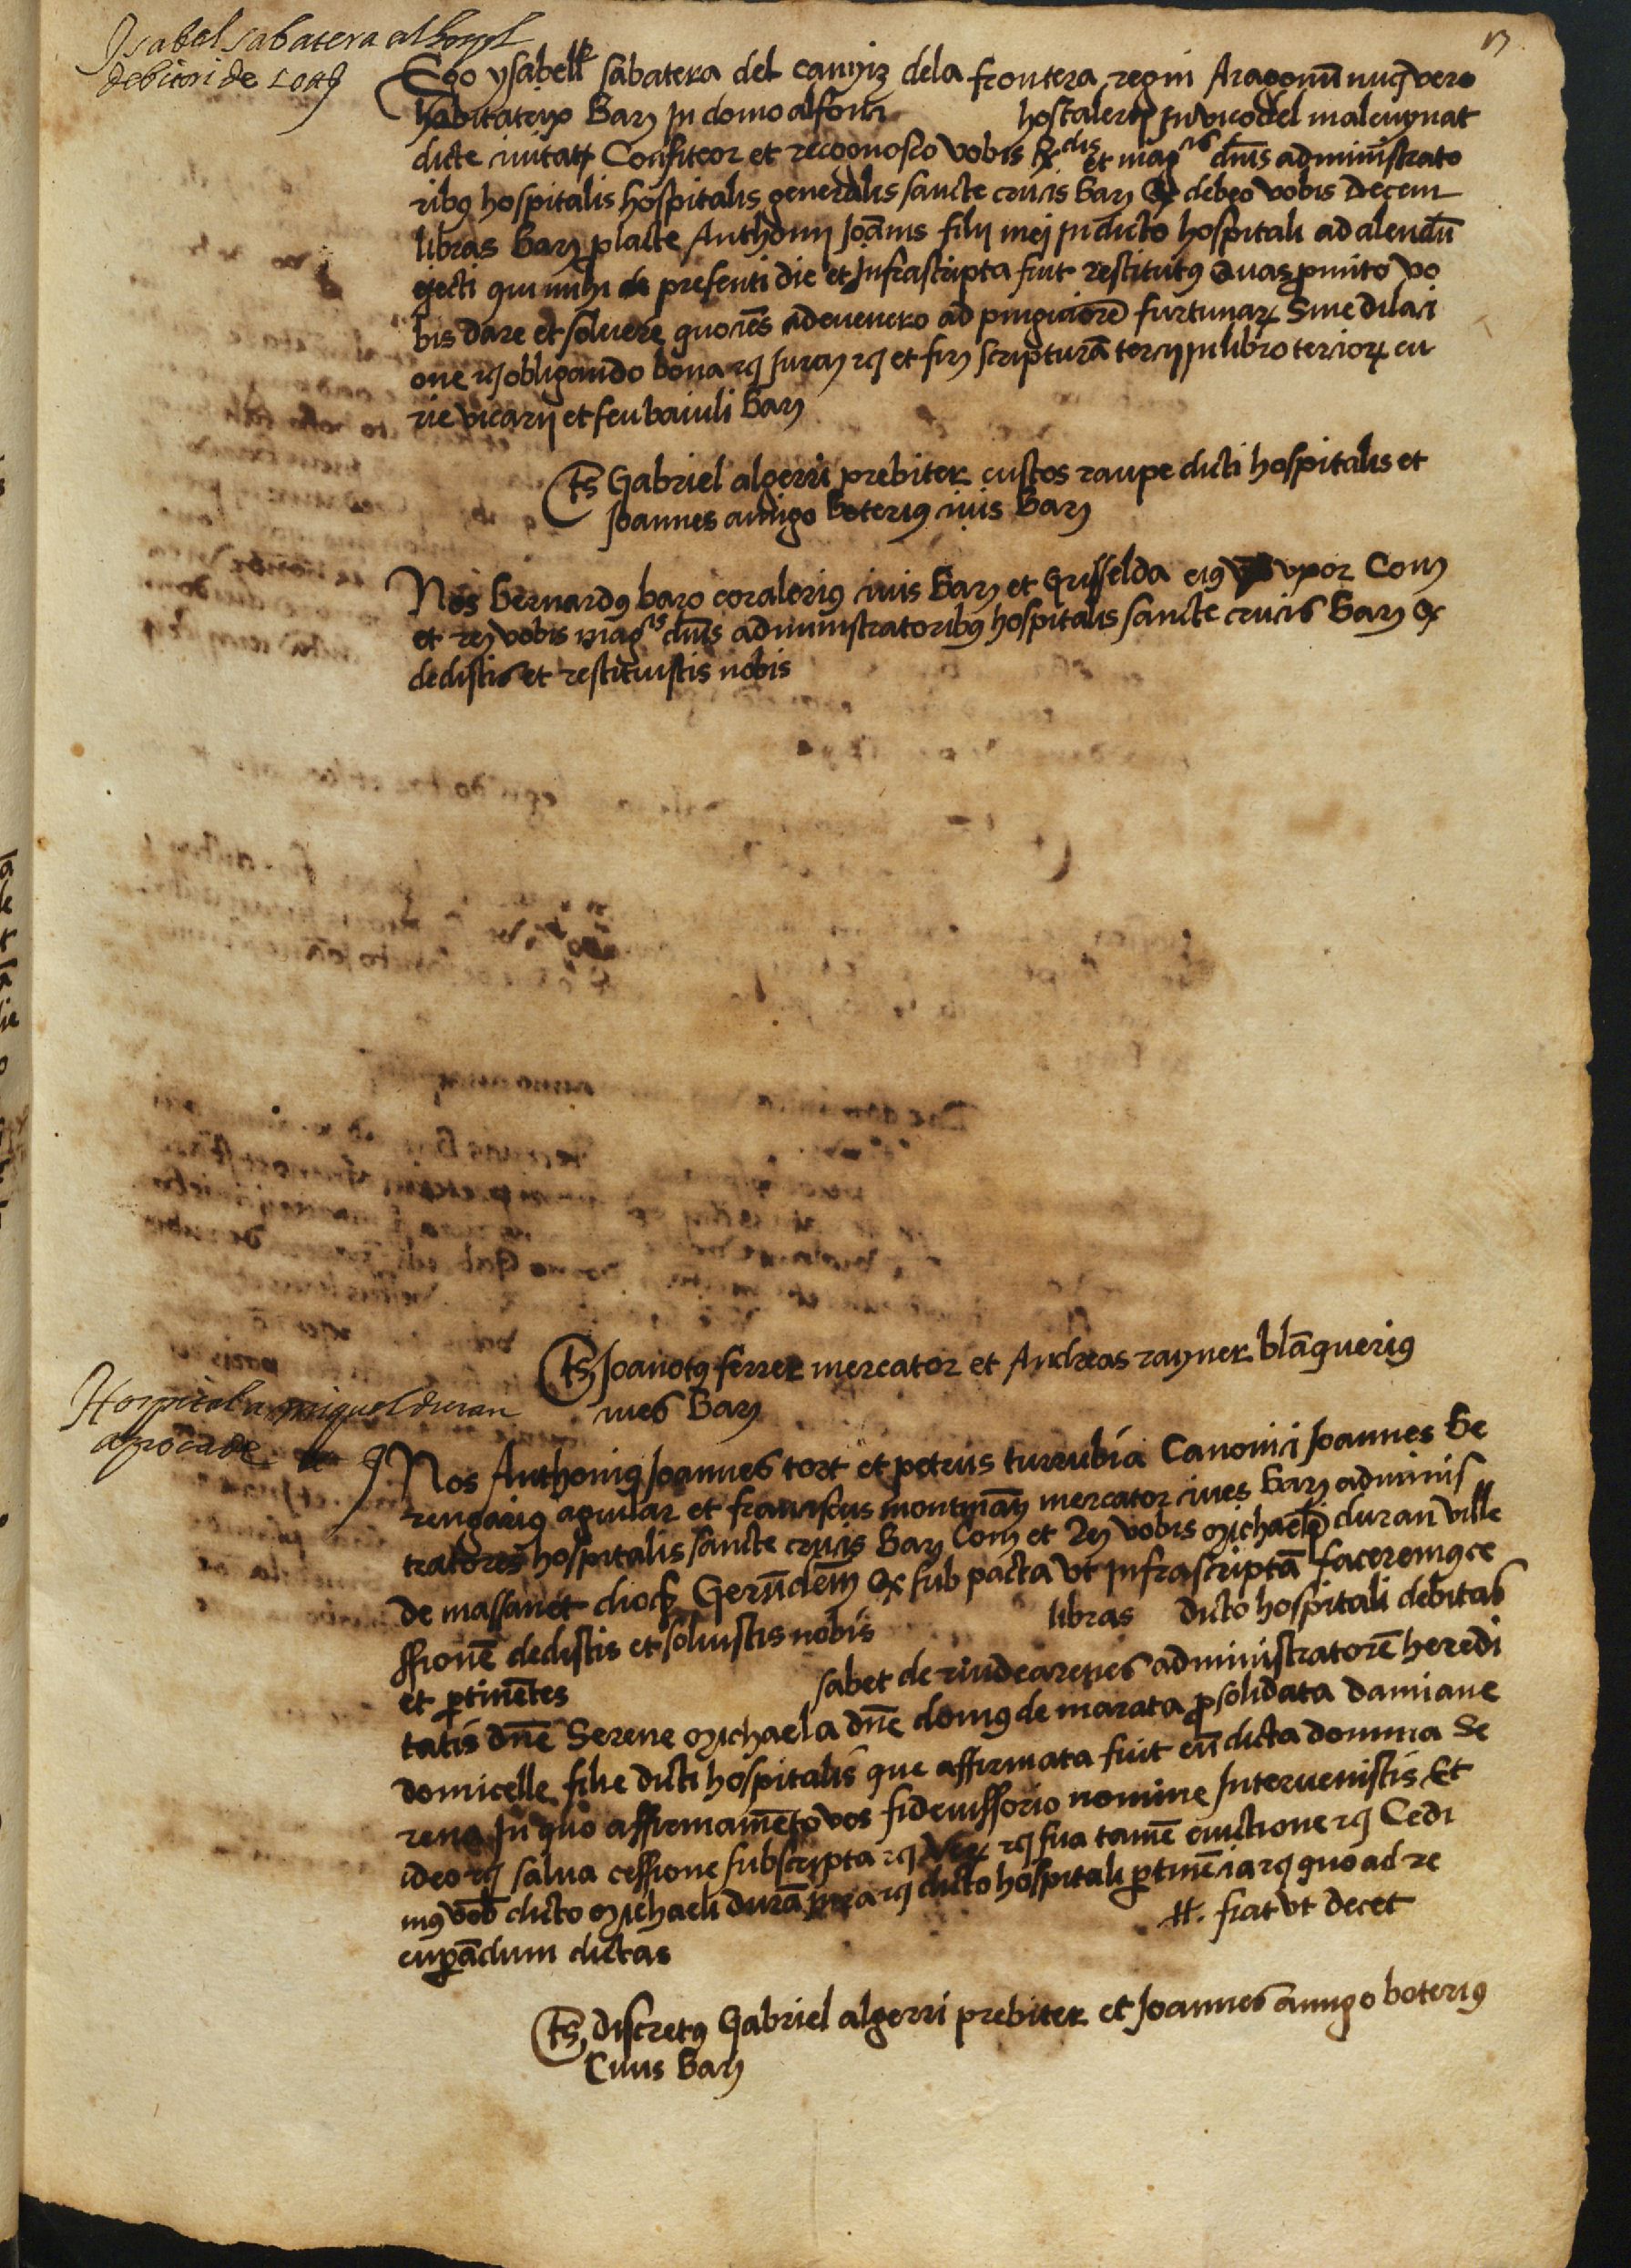 13
Isabel sabatera al hospl
debitori de 10 ll
Ego ysabell sabatera del canyiz dela frontera regni Aragonũ nũc vero
habitatrix Barñ in domo alfonsi hostalerij in vico del malcuynat
dicte civitatis Confiteor et recognosco vobis Rdis et magcis dñis administrato
ribus hospitalis hospitalis generalis sancte crucis Barñ q debeo vobis decem
libras Barñ p lacte Anthonij Joãnis filij mej in dicto hospitali ad alendũ
ejecti qui mihi de presenti die et infrascripta fuit restitutus Quas pmito vo
bis dare et solvere quociẽs advenero ad pinguiorẽ furtunaꝝ Sine dilaci
one rꝗ obligando bona rꝗ Juraꝗ rꝗ et firꝗ scripturã tercij in libro tercioꝝ cu
rie vicarij et seu baiuli Barñ
Ts Gabriel algerri prebiter custos raupe dicti hospitalis et
Joannes amigo boterius civis Barñ
Nos bernardus baro coralerius civis Barñ et Grisselda eius uxor Conꝗ
et reꝗ vobis magcis dñis administratoribus hospitalis sancte crucis Barñ q
dedistis et restituistis nobis
Ts Joanotus ferrer mercator et Andreas rayner blãquerius
cives Barñ
Hospital a miquel duran
apoca de
Nos Anthonius Joannes tort et petrus turrubia Canonici Joannes Be
rengarius aguilar et franciscus montmãy mercator cives Barñ adminis
tratores hospitalis sancte crucis Barñ Conꝗ et Reꝗ vobis michaeli duran ville
de massanet dioc Gerũdẽñ q sub pacta ut infrascriptã faceremus ce
ssionẽ dedistis et solvistis nobis libras dicto hospitali debitas
et ptinẽtes sabet de riudearenes administratorẽ heredi
tatis dñe Serene michaela dñe domus de marata p solidata damiane
domicelle filie dicti hospitalis que affirmata fuit cũ dicta domina Se
rena In quo affirmamẽto vos fideiussorio nomine Intervenistis Et
ideo rꝗ salva cessione subscripta rꝗ rꝗ sua tamẽ evictione rꝗ Cedi
mus vob dicto michaeli durã jura rꝗ dicto hospitali ptinẽcia rꝗ quo ad re
cuperãdum dictas ll. fiat ut decet
Ts discretus Gabriel algerri prebiter et Joannes amigo boterius
Civis Barñ